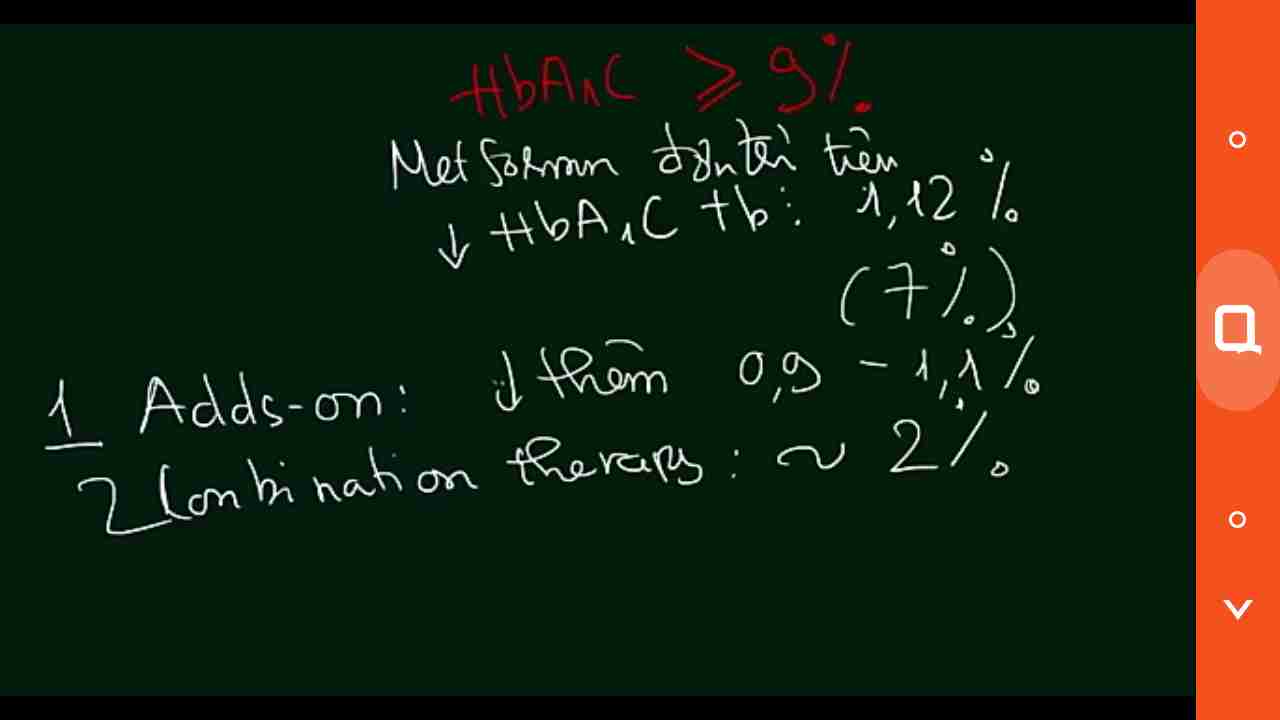 HbA1C ≥ 9%
Metformin đầu tiên
↓ HbA1C tb: 1,12%
(7%)
1 Adds-on: ↓ thêm 0,9 - 1,1%
2 Combination therapy: ~ 2%